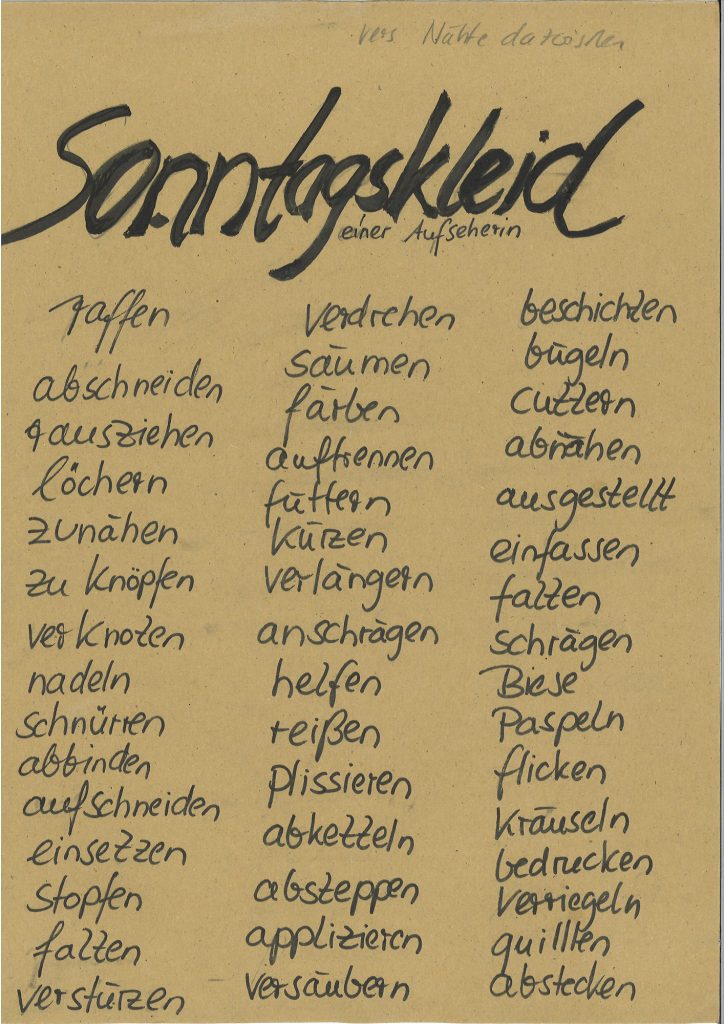 vers Nähte dazwischen
Sonntagskleid
einer Aufseherin
raffen
abschneiden
rausziehen
löchern
zunähen
zu knöpfen
verknoten
nadeln
schnürren
abbinden
aufschneiden
einsetzen
stopfen
falten
verstürzen
verdrehen
säumen
färben
auftrennen
füttern
kürzen
verlängern
anschrägen
helfen
reißen
plissieren
abketteln
absteppen
applizieren
versäubern
beschichten
bügeln
cuttern
abnähen
ausgestellt
einfassen
falten
schrägen
Biese
Paspeln
flicken
kräuseln
bedrucken
verriegeln
quillten
abstecken